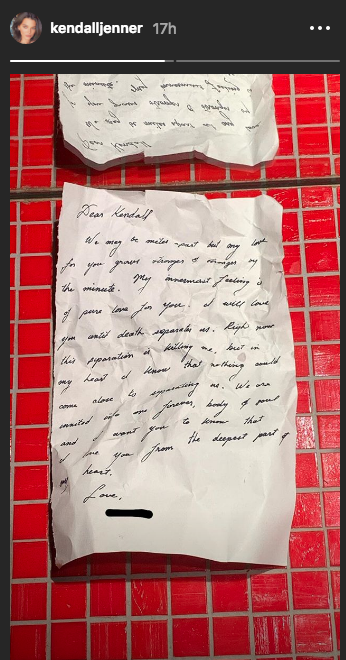 kendalljenner 17h
Dear Kendall
We may be miles apart but my love
for you grows stronger & stronger by
the minute. My innermost feeling is
of pure love for you. I will love
you until death separates us. Right now
this separation is killing me, but in
my heart I know that nothing could
come close to separating We are
united into one forever, body & soul
and I want you to know that
I love you from the deepest part of
my heart.
Love,